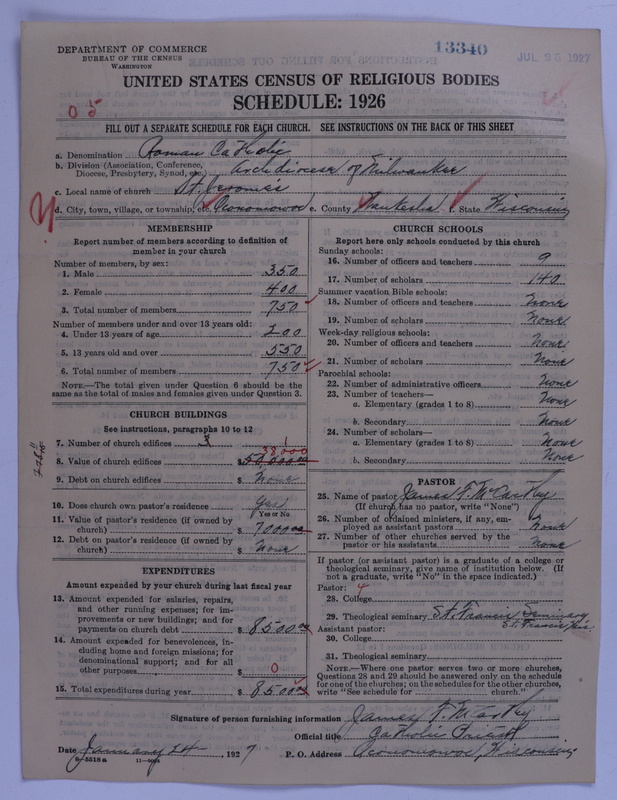 DEPARTMENT OF COMMERCE
BUREAU OF THE CENSUS
WASHINGTON
13340
JUL 26 1927
UNITED STATES CENSUS OF RELIGIOUS BODIES
SCHEDULE: 1926
05
FILL OUT A SEPARATE SCHEDULE FOR EACH CHURCH. SEE INSTRUCTIONS ON THE BACK OF THIS SHEET
a. Denomination Roman Catholic
b. Division (Association, Conference, Diocese, Presbytery, Synod, etc.) Archdiocese of Milwaukee
c. Local name of church St. Jerome's
d. City, town, village, or township, etc. Oconomowoc e. County Waukesha f. State Wisconsin
MEMBERSHIP
Report number of members according to definition of
member in your church
Number of members, by sex:
1. Male 350
2. Female 400
3. Total number of members 750
Number of members under and over 13 years old:
4. Under 13 years of age 200
5. 13 years old and over 550
6. Total number of members 750
NOTE.—The total given under Question 6 should be
same as the total of males and females given under Question 3.
CHURCH BUILDINGS
See instructions, paragraphs 10 to 12
7. Number of church edifices 1
38000
8. Value of church edifices $50,000.00
9. Debt on church edifices $ None
10. Does church own pastor's residence? Yes
Yes or No
11. Value of pastor's residence (if owned by
church) $ 7000.00
12. Debt on pastor's residence (if owned by
church) $ None
EXPENDITURES
Amount expended by your church during last fiscal year
13. Amount expended for salaries, repairs,
and other running expenses; for im-
provements or new buildings; and for
payments on church debt $ 8500.00
14. Amount expended for benevolences, in-
cluding home and foreign missions; for
denominational support; and for all
other purposes $ 0
15. Total expenditures during year $ 8500.00
CHURCH SCHOOLS
Report here only schools conducted by this church
Sunday schools:
16. Number of officers and teachers 9
17. Number of scholars 140
Summer vacation Bible schools:
18. Number of officers and teachers None
19. Number of scholars None
Week-day religious schools:
20. Number of officers and teachers None
21. Number of scholars None
Parochial schools:
22. Number of administrative officers None
23. Number of teachers—
a. Elementary (grades 1 to 8) None
b. Secondary None
24. Number of scholars—
a. Elementary (grades 1 to 8) None
b. Secondary None
PASTOR
25. Name of pastor James F. McCarthy
(If church has no pastor, write "None")
26. Number of ordained ministers, if any, em-
ployed as assistant pastors None
27. Number of other churches served by the
pastor or his assistants None
If pastor (or assistant pastor) is a graduate of a college or
theological seminary, give name of institution below. (If
not a graduate, write "No" in the space indicated.)
Pastor:
28. College
29. Theological seminary St. Francis Seminary
St. Francis Wis.
Assistant pastor:
30. College
31. Theological seminary
NOTE.—Where one pastor serves two or more churches,
Questions 28 and 29 should be answered only on the schedule
for one of the churches; on the schedules for the other churches,
write "See schedule for church."
Signature of person furnishing information James F. McCarthy
Official title Catholic Priest
Date January 24 1927 P. O. Address Oconomowoc, Wisconsin
8-5518a 11-9024